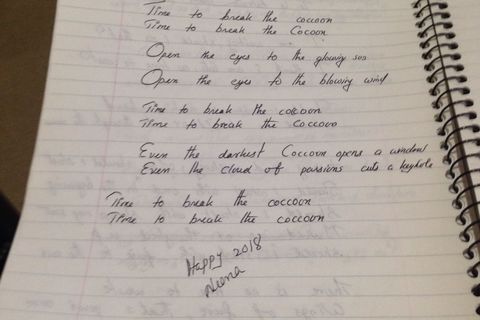 Time to break the coccoon
Time to break the Cocoon
Open the eyes to the glowing sun
Open the eyes to the blowing wind
Time to break the coccoon
Time to break the Coccoon
Even the darkest Coccoon opens a window
Even the cloud of passions cuts a keyhole
Time to break the coccoon
Time to break the coccoon
Happy 2018
Neena